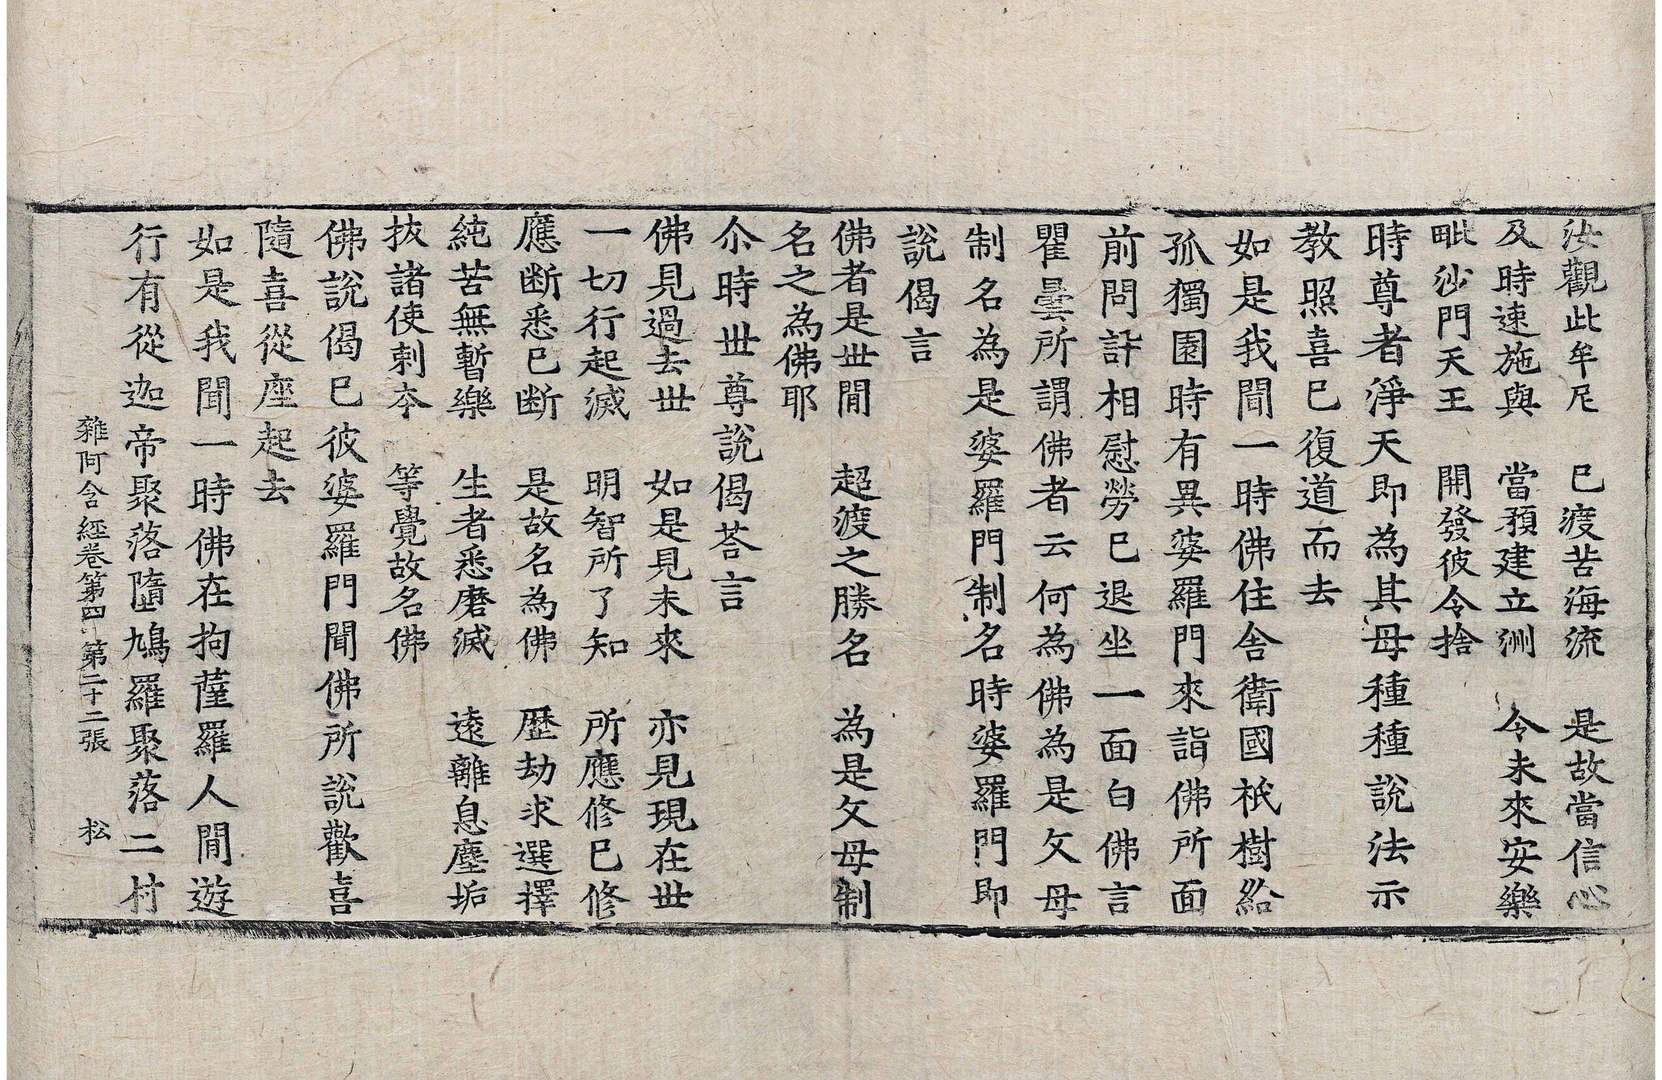 汝觀此牟尼　已渡苦海流　是故當信心
及時速施與　當預建立洲　令未來安樂
毗沙門天王　開發彼令捨
時尊者淨天即為其母種種說法示
教照喜已復道而去
如是我聞一時佛住舍衛國祇樹給
孤獨園時有異婆羅門來詣佛所面
前問訊相慰勞已退坐一面白佛言
瞿曇所謂佛者云何為佛為是父母
制名為是婆羅門制名時婆羅門即
說偈言
佛者是世閒　超渡之勝名　為是父母制
名之為佛耶
尒時世尊說偈荅言
佛見過去世　如是見未來　亦見現在世
一切行起滅　明智所了知　所應修已修
應断悉已断　是故名為佛　歷劫求選擇
純苦無暫樂　生者悉磨滅　遠離息塵垢
拔諸使刺夲　等覺故名佛
佛說偈已彼婆羅門聞佛所說歡喜
隨喜從座起去
如是我聞一時佛在拘薩羅人閒遊
行有從迦帝聚落墮鳩羅聚落二村
雜阿含經卷第四　第二十二張　松